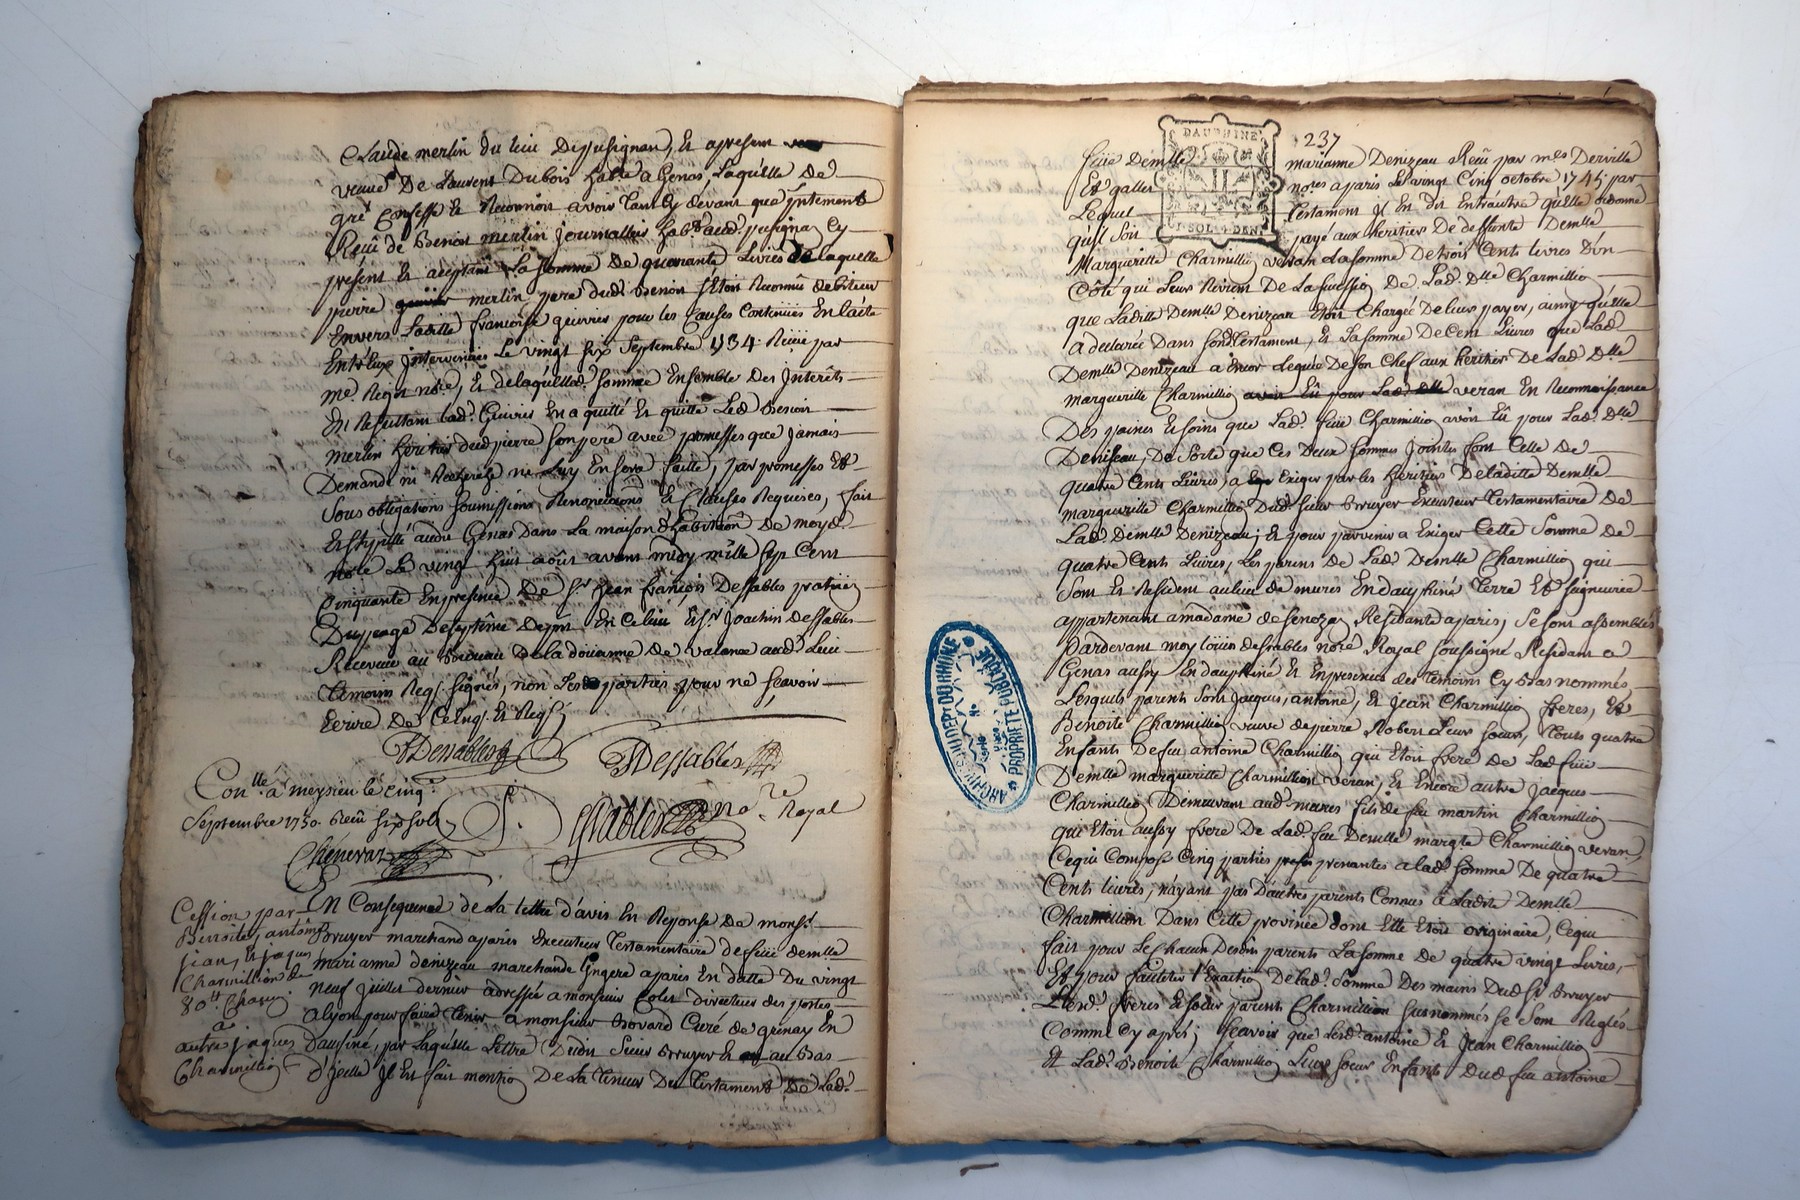 Claude merlin du lieu de pusignan, Et apresent
veuve De Laurent Dubois habte a Genas, Laquelle de
gré Confesse Et Reconnoit avoir tant Cy devant que Jntement
Reçû de Benoit merlin journallier habt aud. pusignan Cy
présent Et aceptant La somme De quarante Livres de laquelle
pierre merlin pere dud. Benoit s'étoit Reconnû debiteur
Envers Ladite françoise guivrés pour les Causes Contenües En l'acte
Entr'eux Jntervenües Le vingt six Septembre 1734. Reçüe par
me. Régis nore, Et de laquelled. somme Ensemble Des Jnterêts
En Resultant lad. Guivrés En a quitté Et quitte Led. Benoit
merlin héritier dud pierre son pere avec promesses que jamais
Demande ni Recherche ne luy En sera faitte, par promesses Et
Sous obligations soumissions Renonciations Et Clauses Requises, fait
Et stipullé audit Genas Dans La maison d'habitation De moyd
nore Le vingt huit août avant midy mille sept Cent
Cinquante En presence De Sr. Jean françois Dessables praticien
Du peage De septême Depnt En Ce lieu Et Sr. Joachin dessables
Receveur au Bureau De la doüanne De valance aud. Lieu
temoins Reqs. signés, non Lesd parties pour ne sçavoir
Ecrire De Ce Enq. Et Reqs.
JDessables
JDessables
Conlle. a meysieu le cinq.
Septembre 1750. Reçu six sols
Chenevaz
Dessables nore Royal
Cession par
Benoite, antoine
jean, Et jaques
Charmillion de
80 lt Chacun
a
autre jaques
Charmillion
En Consequence de La lettre d'avis En Reponse De monsr.
Bruyer marchand a paris Executeur Testamentaire de feüe demlle
marianne denizeau marchande lingere a paris En datte Du vingt
neuf juillet dernier adressée a monsieur Colet Directeur des postes
a lyon pour faire tenir a monsieur Bovard Curé de grenay En
Daufiné, par Laquelle Lettre Dudit Sieur Bruyer Et au Bas
d'jcelle Jl Est fait mention De La teneur Du Testament De Lad.
237
DAUPHINE
II
SOL. 4 DEN.
feüe Demlle marianne Denizeau Reçu par mes Derville
Et gallet nores a paris Le vingt Cinq octobre 1745. par
Lequel testament Jl Est dit Entr'autre qu'Elle ordonne
qu'il soit payé aux heritiers De deffunte Demlle
Margueritte Charmillion veran La somme De trois Cents livres D'un
Côté qui Leur Revient De La succession De Lad. Dlle Charmillion
que Ladite Demlle Denizeau Etoit Chargée De leur payer, ainsy qu'elle
a declarée Dans son d. Testament, Et La somme De Cent Livres que Lad.
Demlle Denizeau a Encor Leguée De son Chef aux heritiers De Lad. Dlle
margueritte Charmillion veran En Reconnoissance
Des paines Et soins que Lad. feüe Charmillion avoit Eû pour Lad. Dlle
Deniseau, De sorte que Ces deux sommes Jointes font Celle De
quatre Cents Livres, a Exiger par les héritiers De ladite Demlle
margueritte Charmillion Dud. sieur Bruyer Executeur Testamentaire De
Lad. Demlle Denizeau; Et pour parvenir a Exiger Cette Somme De
quatre Cents Livres, Les parens De Lad. Demlle Charmillion qui
Sont Et Resident au lieu de mures En dauphiné Terre Et seigneurie
appartenant a madame de Senozan, Residante a paris, Se sont assemblés
Pardevant moy Loüis dessables nore Royal soussigné Residant a
Genas aussy En dauphiné Et En presence des temoins Cy bas nommés,
Lesquels parents sont Jacques, antoine, Et Jean Charmillion freres, Et
Benoite Charmillion veuve de pierre Robert Leur soeur, Touts quatre
Enfants De feu antoine Charmillion qui Etoit frere De Lad. feüe
Demlle margueritte Charmillion veran, Et Encore autre jacques
Charmillion Demeurant aud. mures fils de feu martin Charmillion
qui Etoit aussy frere De Lad. feüe Demlle margte Charmillion veran,
Ce qui Compose Cinq parties prenantes a lad. somme De quatre
Cents Livres, n'ayant pas D'autres parents Connus a Ladite Demlle
Charmillion Dans Cette province dont Elle Etoit originaire, Ce qui
fait pour Le Chacun Desdits parents La somme De quatre vingt Livres,
Et pour faciliter l'Exaction De lad. Somme Des mains Dud Sr. Bruyer
Lesd. freres Et soeur parents Charmillion susnommés Se sont Reglés
Comme Cy après; Sçavoir que Lesd. antoine Et Jean Charmillion
Et Lad. Benoite Charmillion Leur soeur Enfants Dud feu antoine
ARCHIVES DU DEPT DU RHONE
PROPRIÉTÉ PUBLIQUE